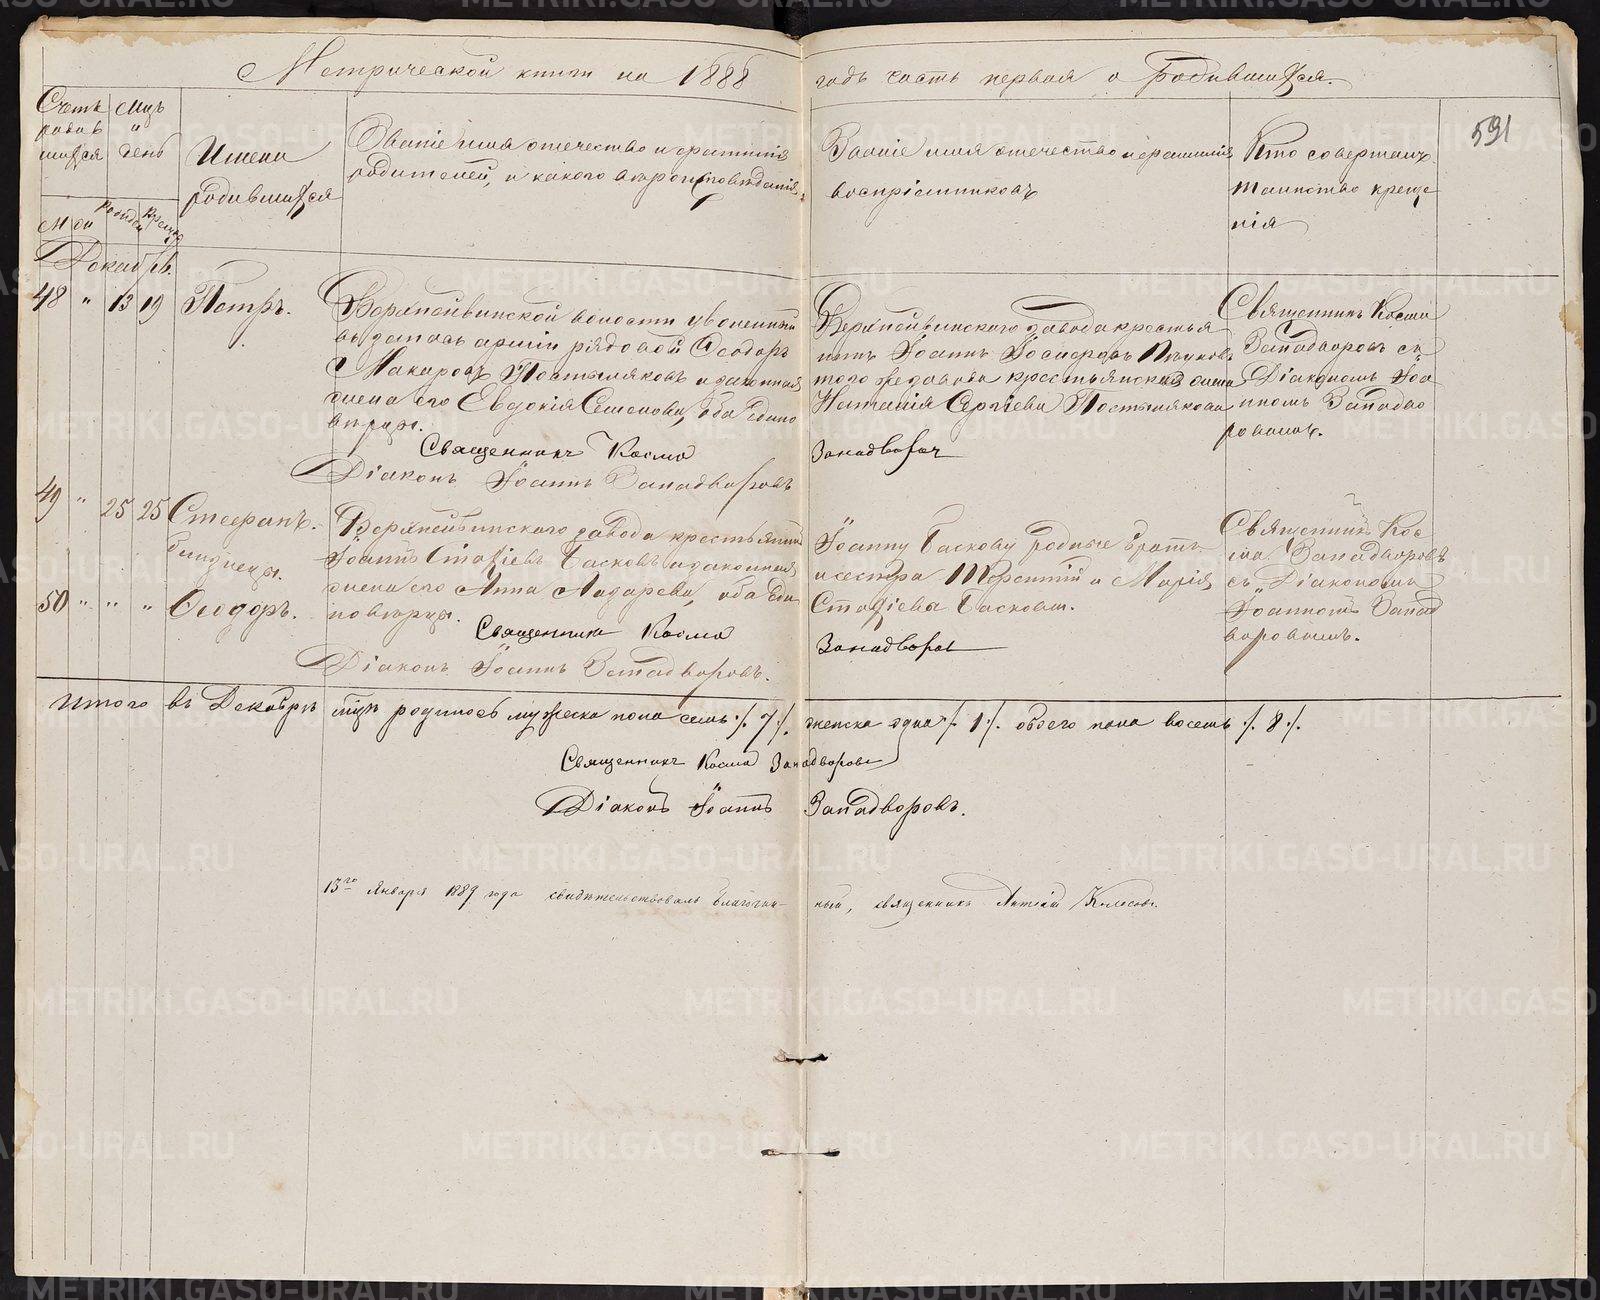 Метрической книги на 1888 годъ часть первая о родившихся.
591
Счетъ родившихся
Мцъ и день
Имена родившихся
Званіе имя отечество и фамилія
родителей, и какого вѣроисповѣданія
Званіе имя отечество и фамилія
воспріемниковъ
Кто совершалъ
таинство креще
нія
Декабрь.
48 " 13 19 Петръ.
Верхнейвинской волости уволенный
въ запасъ арміи рядовой Ѳеодоръ
Макаровъ Постыляковъ и законная
жена его Евдокія Семенова, оба едино
вѣрцы.
Священникъ Косма
Діаконъ Іоаннъ Западворовъ
Верхнейвинского завода крестья
нинъ Іоаннъ
того же завода крестьянская жена
Наталія Сергіева Постылякова
Западворов
Священникъ Косма
Западворовъ съ
Діакономъ Іоа
нномъ Западво
ровымъ.
49 " 25 25 Стефанъ.
близнецы.
50 " " " Ѳеодоръ.
Верхнейвинского завода крестьянинъ
Іоаннъ Стахіевъ Басковъ и законная
жена его Анна Лазарева, оба еди
новѣрцы.
Священникъ Косма
Діаконъ Іоаннъ Западворовъ.
Іоанну Баскову родные братъ
и сестра Терентій и Марія
Стахіевы Басковы.
Западворов
Священникъ Кос
ма Западворовъ
съ Діакономъ
Іоанномъ Запад
воровымъ.
Итого въ Декабрѣ мцѣ родилось мужеска пола семь ./. 7 ./. женска одна ./. 1 ./. обоего пола восемь ./. 8 ./.
Священникъ Косма Западворовъ
Діаконъ Іоаннъ Западворовъ.
13го Января 1889 года свидѣтельствовалъ благочин- ный, священникъ
METRIKI.GASO-URAL.RU